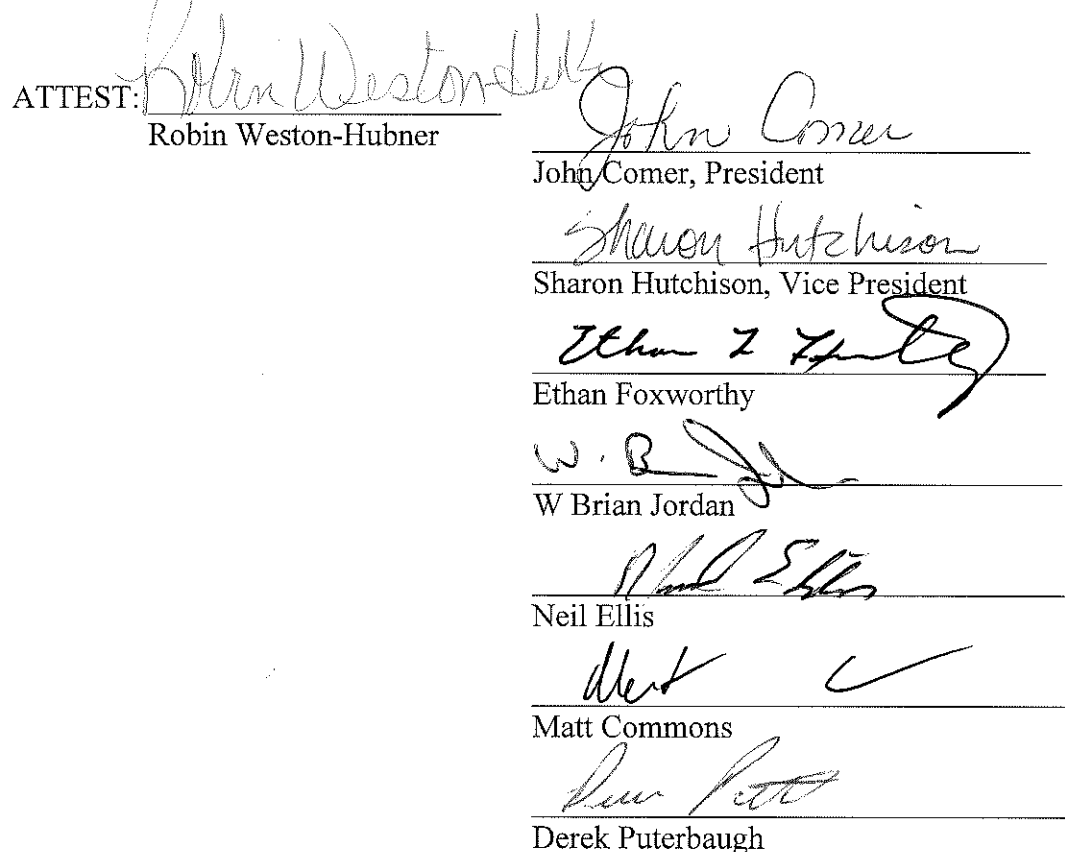 Robin Weston-Hub
ATTEST:
Robin Weston-Hubner
John Comer
John Comer, President
Sharon Hutchison
Sharon Hutchison, Vice President
Ethan
Ethan Foxworthy
W. B
W Brian Jordan
Ellis
Neil Ellis
Matt
Matt Commons
Derek Puterbaugh